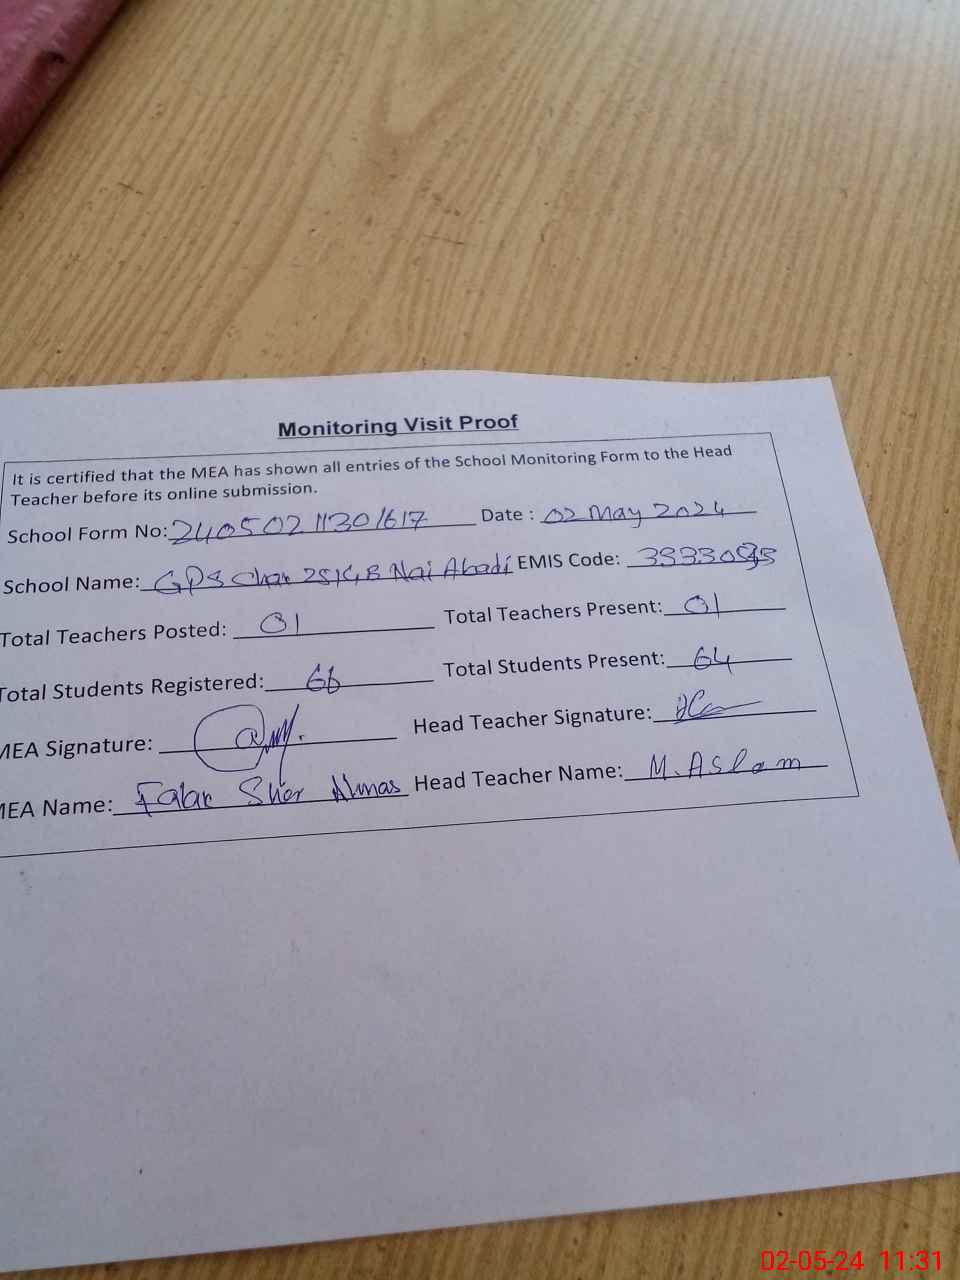 Monitoring Visit Proof
It is certified that the MEA has shown all entries of the School Monitoring Form to the Head
Teacher before its online submission.
School Form No: 24050211301617 Date : 02 May 2024
School Name: GPS Nai Abadi EMIS Code:
Total Teachers Posted: 01 Total Teachers Present: 01
Total Students Registered: 66 Total Students Present: 64
MEA Signature: Head Teacher Signature:
MEA Name: Sher Almas Head Teacher Name: M. Aslam
02-05-24 11:31